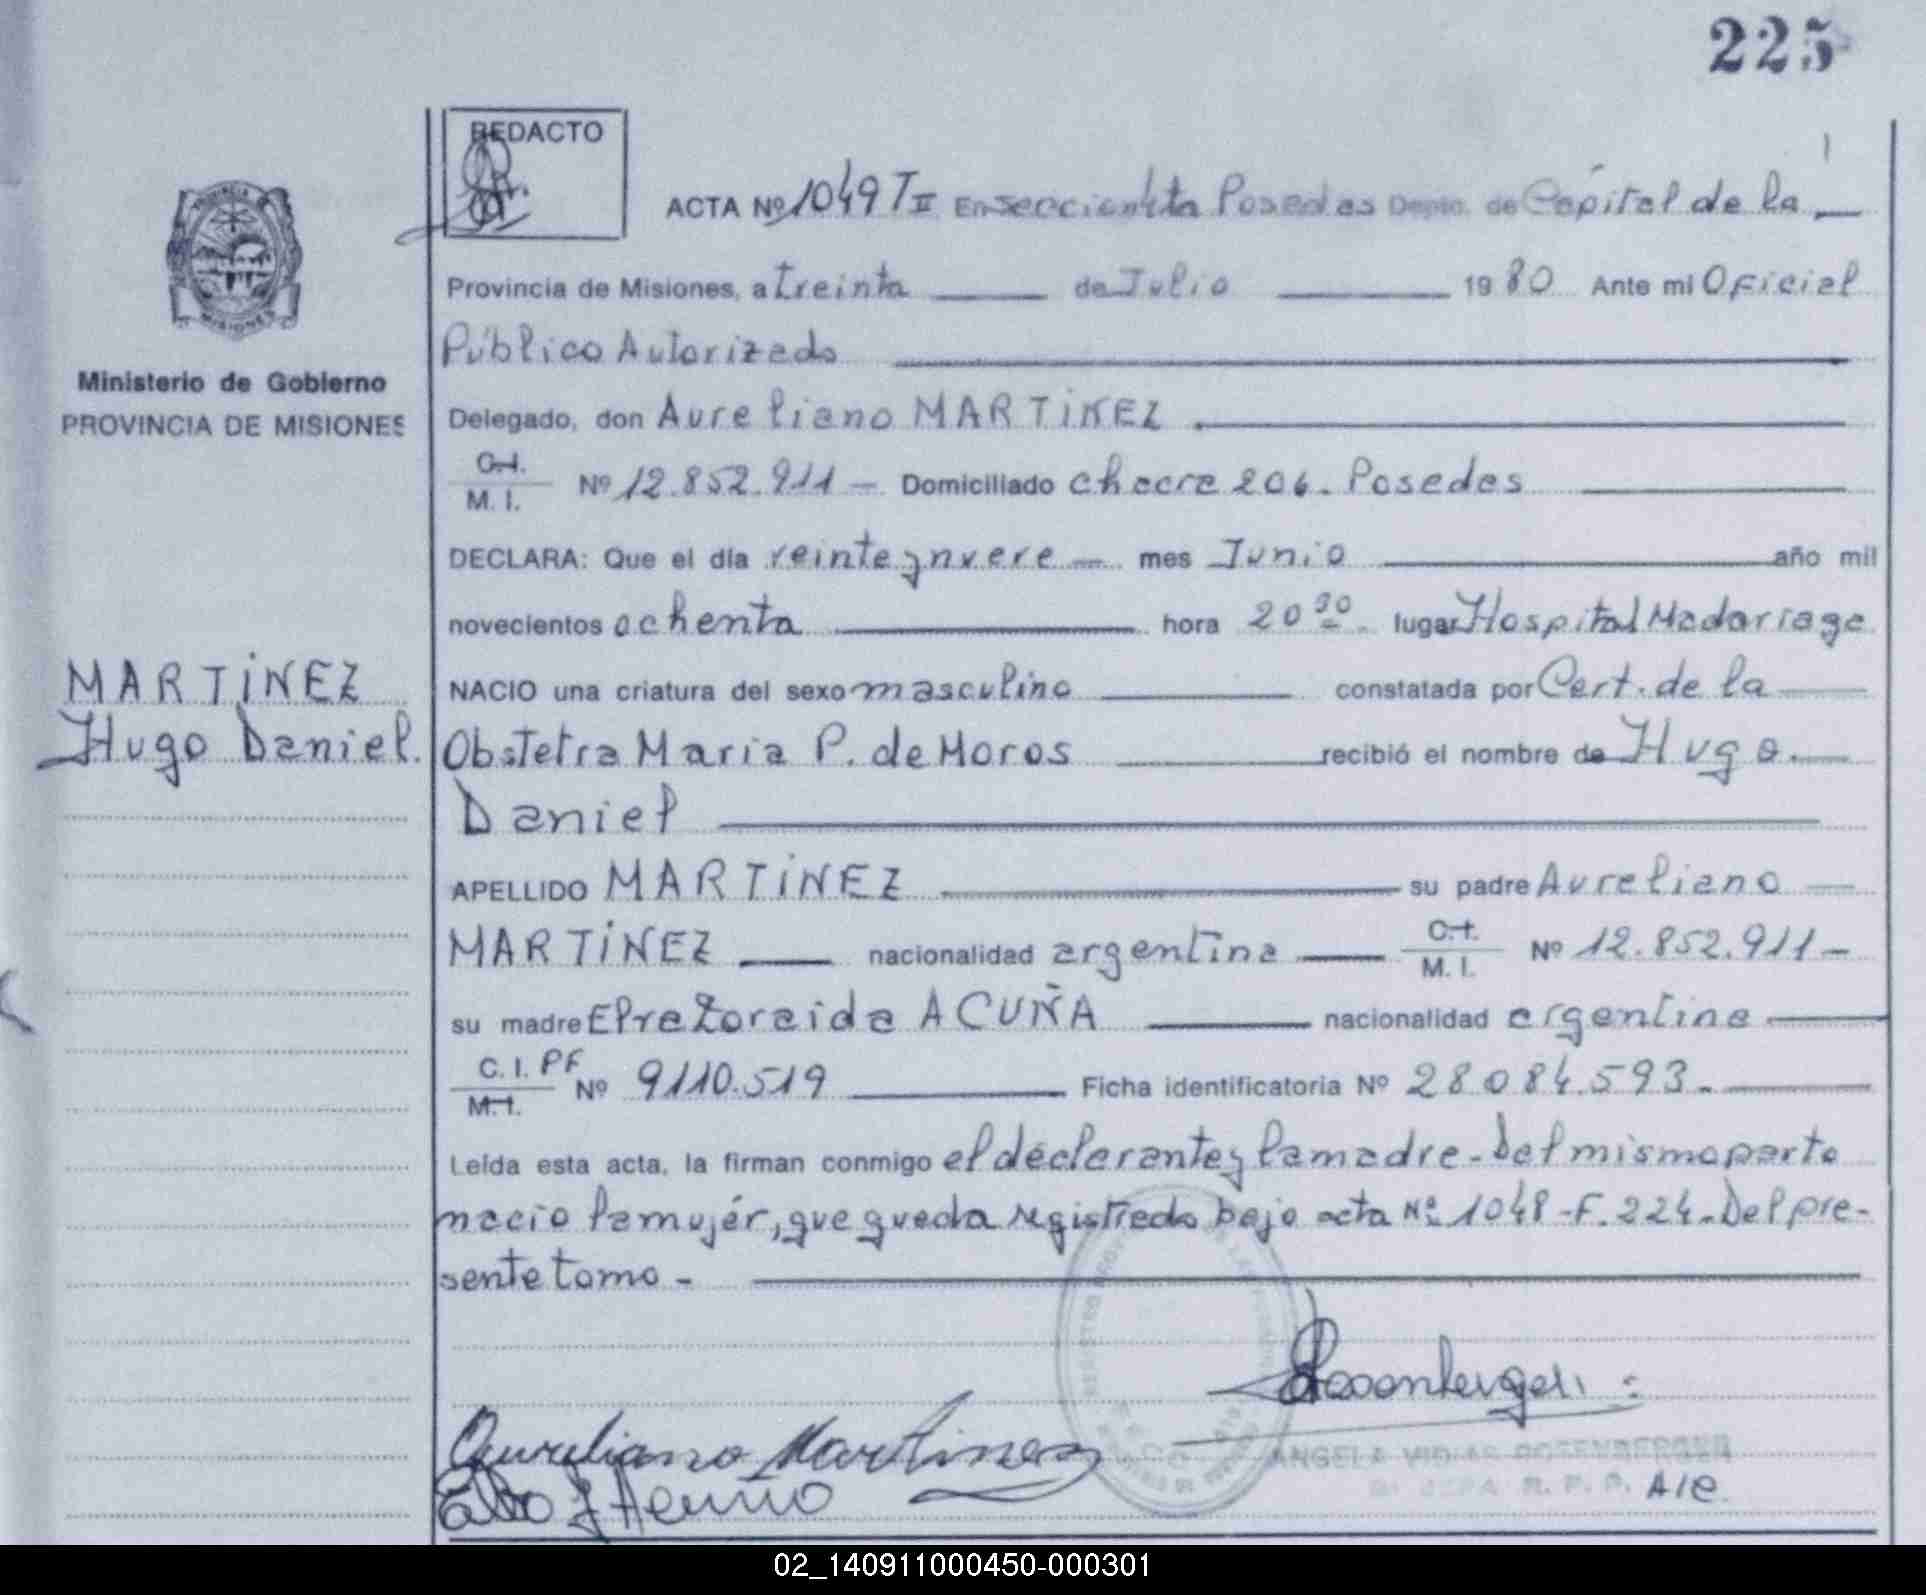 225
REDACTO
ACTA Nº 1049 T II En seccion 4ta Posadas Depto. de Capital de la
Provincia de Misiones, a treinta de Julio 1980 Ante mi Oficial
Público Autorizado
Ministerio de Gobierno
PROVINCIA DE MISIONES
Delegado, don Aureliano MARTINEZ
C.I.
M. I. Nº 12.852.911 - Domiciliado chacra 206. Posadas
DECLARA: Que el día veinte y nueve mes Junio año mil
novecientos ochenta hora 20 30 lugar Hospital Madariaga
MARTINEZ
Hugo Daniel.
NACIO una criatura del sexo masculino constatada por Cert. de la
Obstetra Maria P. de Moros recibió el nombre de Hugo
Daniel
APELLIDO MARTINEZ su padre Aureliano
MARTINEZ nacionalidad argentina C.I.
M. I. Nº 12.852.911 -
su madre Elva Zoraida ACUÑA nacionalidad argentina
C. I. PF
M.I. Nº 9110.519 Ficha identificatoria Nº 28084.593.
Leída esta acta, la firman conmigo el declarante y la madre - Del mismo parto
nacio la mujér, que queda registrado bajo acta Nº 1048 - F. 224 - Del pre-
sente tomo -
Aureliano Martinez
ANGELA ROSENBERGER
R. P. P. A/C
02_140911000450-000301